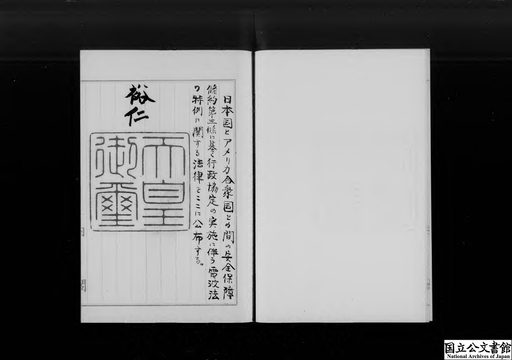 日本国とアメリカ合衆国との間の安全保障
條約第三條に基く行政協定の実施に伴う電波法
の特例に関する法律をここに公布する。
裕仁
天皇
御璽
国立公文書館
National Archives of Japan